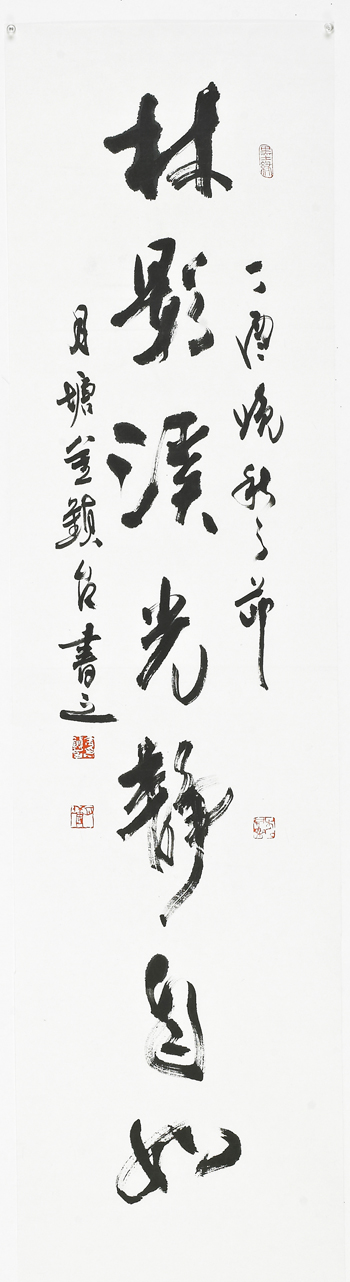 丁酉晚秋之節
林影溪光靜自如
月塘金鎮台書之